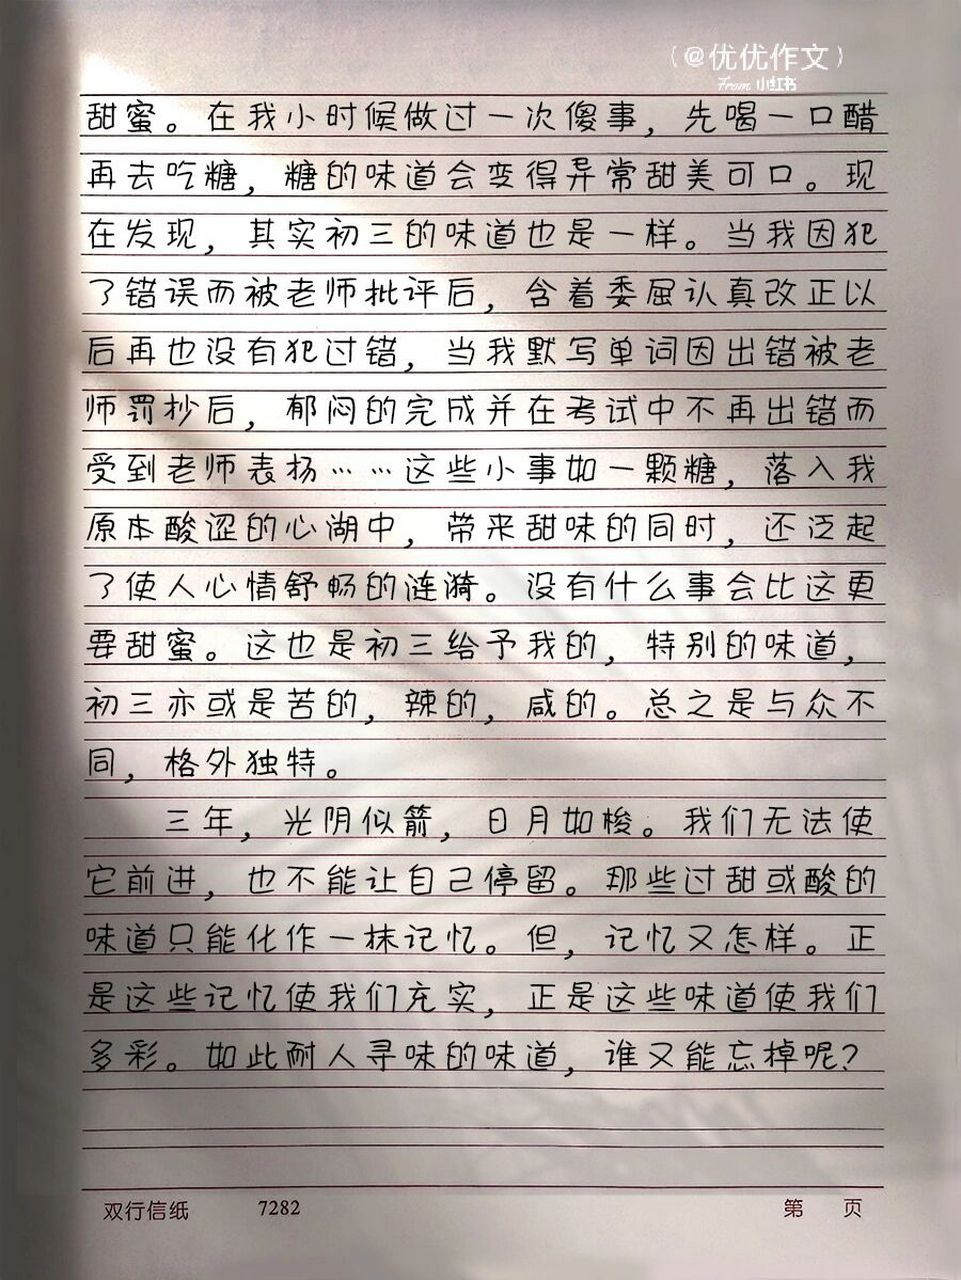 （@优优作文）
From 小红书
甜蜜。在我小时候做过一次傻事，先喝一口醋
再去吃糖，糖的味道会变得异常甜美可口。现
在发现，其实初三的味道也是一样。当我因犯
了错误而被老师批评后，含着委屈认真改正以
后再也没有犯过错，当我默写单词因出错被老
师罚抄后，郁闷的完成并在考试中不再出错而
受到老师表扬……这些小事如一颗糖，落入我
原本酸涩的心湖中，带来甜味的同时，还泛起
了使人心情舒畅的涟漪。没有什么事会比这更
要甜蜜。这也是初三给予我的，特别的味道，
初三亦或是苦的，辣的，咸的。总之是与众不
同，格外独特。
三年，光阴似箭，日月如梭。我们无法使
它前进，也不能让自己停留。那些过甜或酸的
味道只能化作一抹记忆。但，记忆又怎样。正
是这些记忆使我们充实，正是这些味道使我们
多彩。如此耐人寻味的味道，谁又能忘掉呢？
双行信纸 7282 第 页